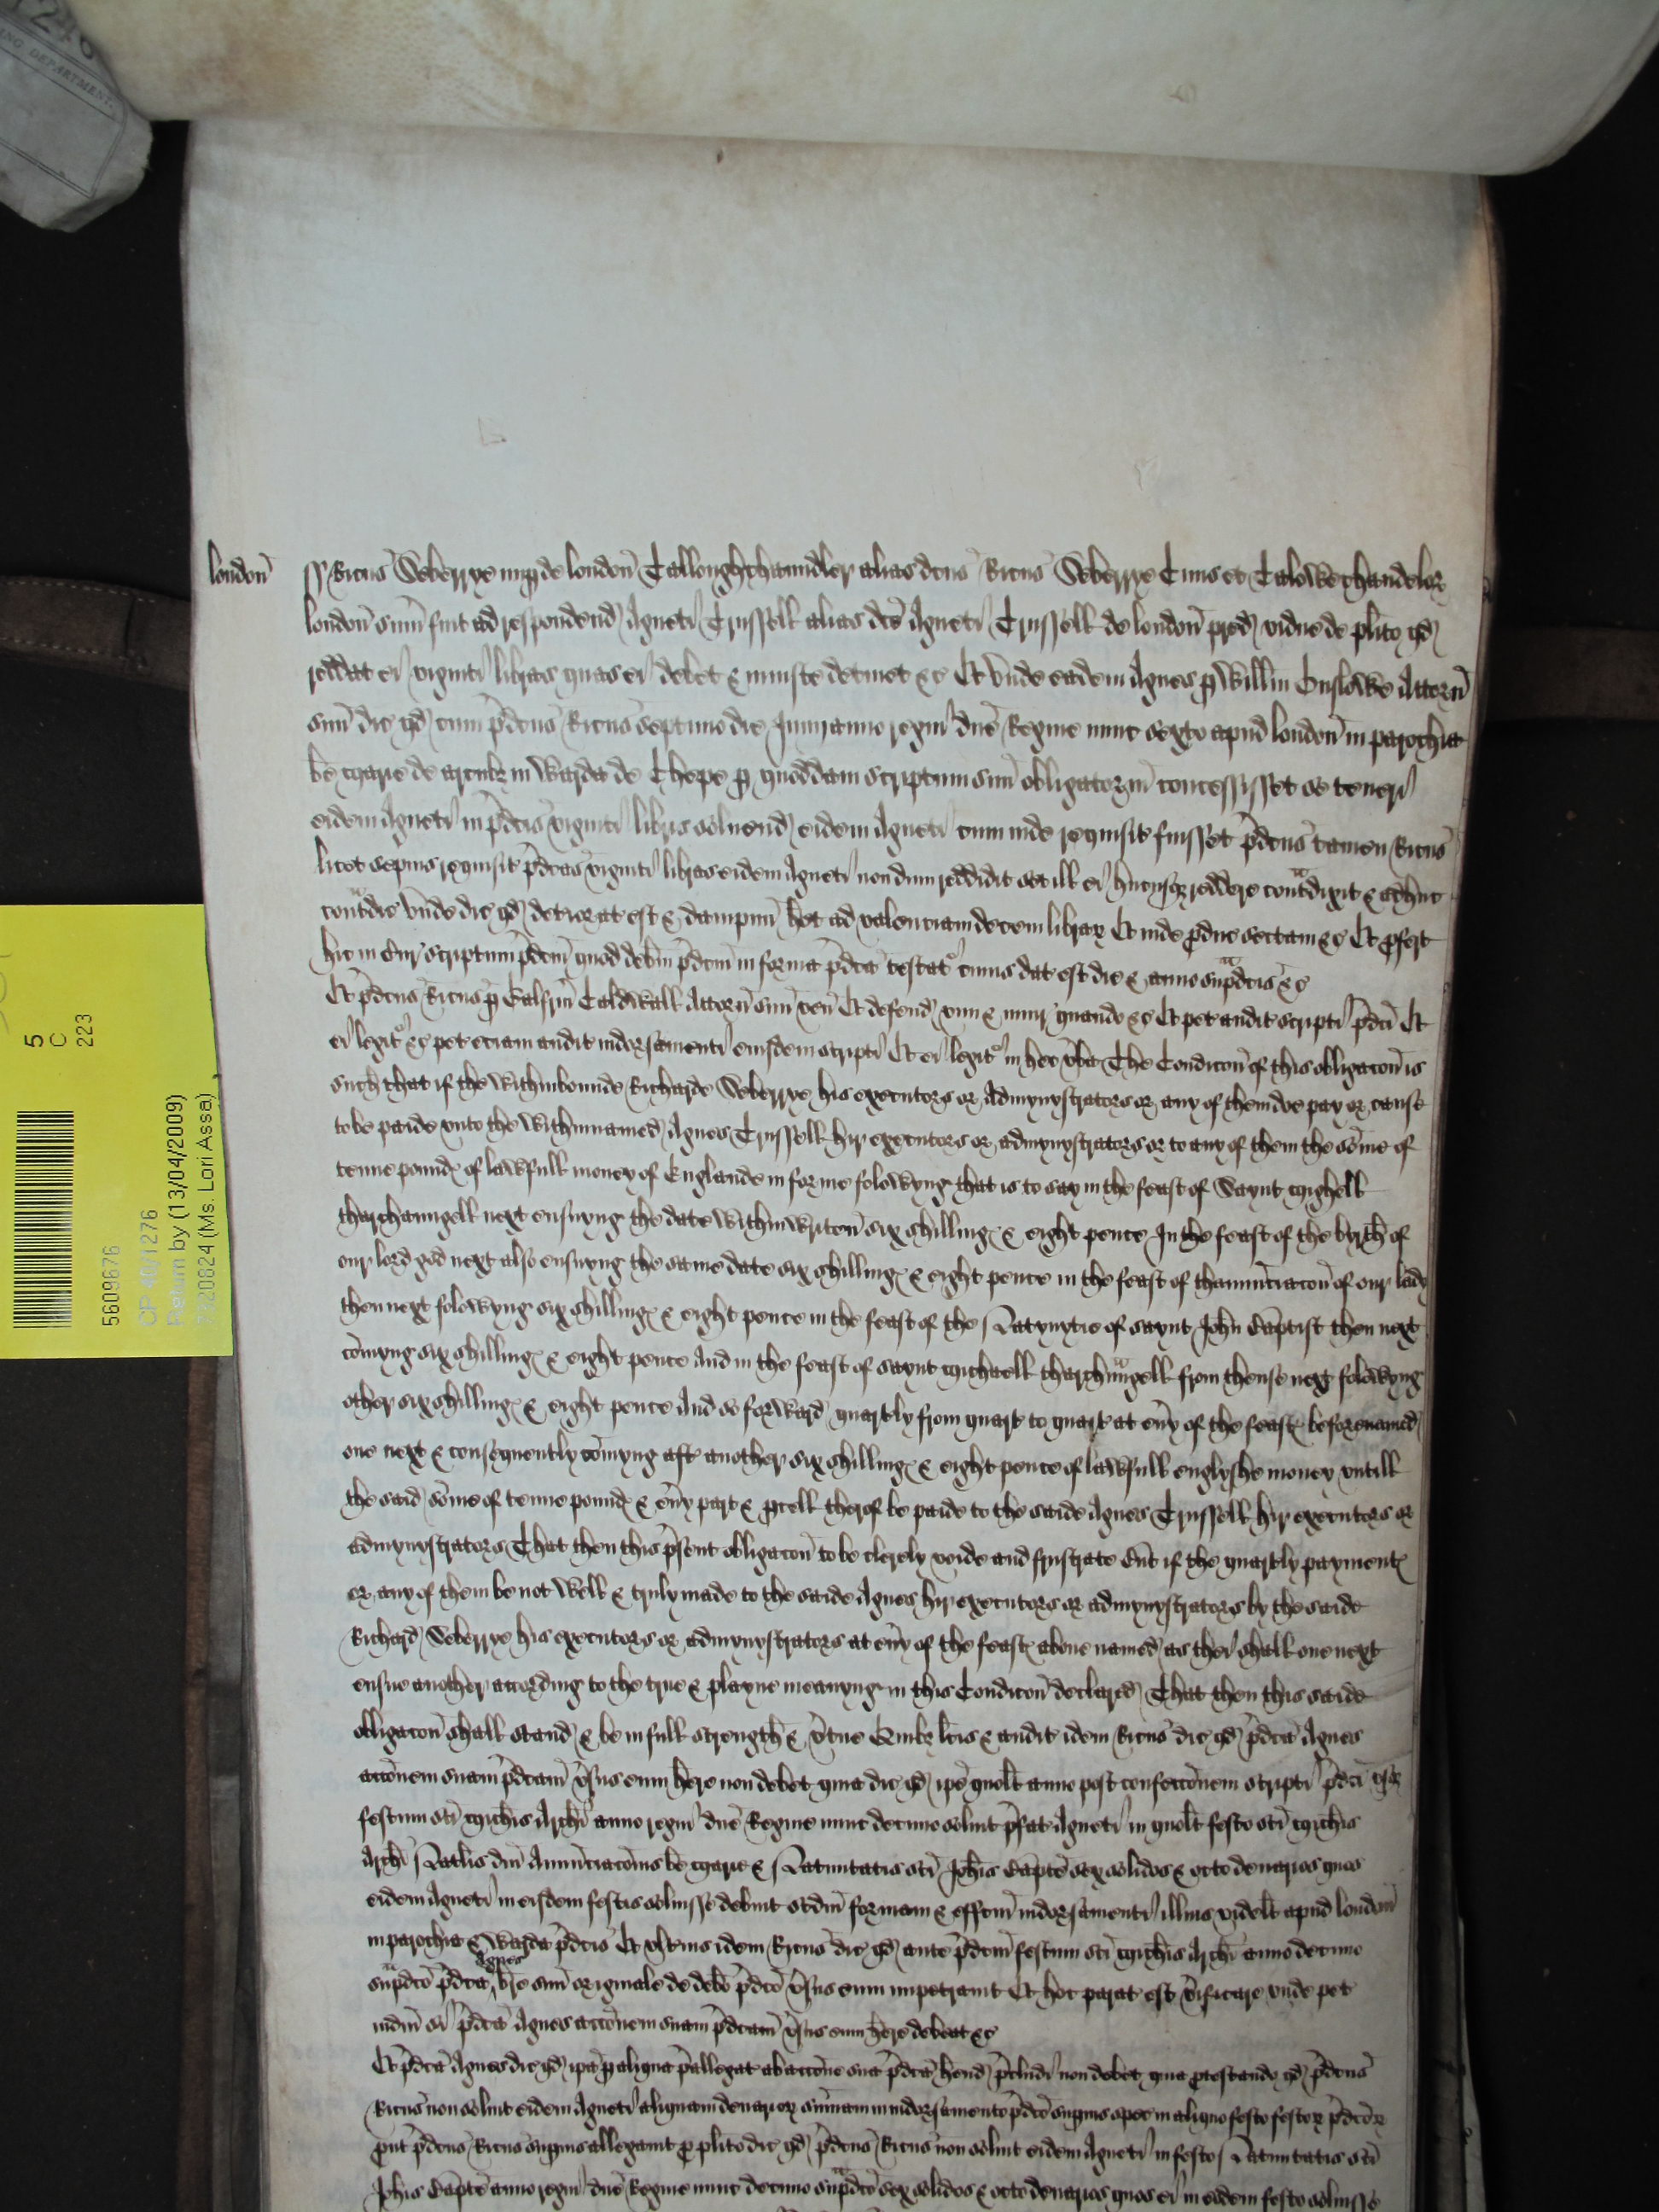 ING DEPARTMENT.
5
C
223
5609676
CP 40/1276
Return by (13/04/2009)
7720824 (Ms. Lori Assa)
london̄ ss Ricūs Seberrye nup de london̄ Talloughchaundler alias dcūs Ricūs Seberrye Ciuis et Talowechandelor
london̄ sum̄ fuit ad respondend Agneti Trussell alias dcē Agneti Trussell de london̄ pred vidue de plito qd
reddat ei viginti libras quas ei debet & iniuste detinet &c Et vnde eadem Agnes p Willm̄ Onslowe Attorn̄
suū dic qd cum p̄dcūs Ricūs septimo die Junij anno regni dnē Regine nunc sexto apud london̄ in parochia
bē Marie de arcubz in Warda de Chepe p quoddam scriptum suū obligatoriū concessisset se teneri
eidem Agneti in p̄dcīs viginti libris soluend eidem Agneti cum inde requisit fuisset p̄dcūs tamen Ricūs
licet sepius requisit p̄dcās viginti libras eidem Agneti nondum reddidit set ill ei hucusqz reddere contradixit & adhuc
contradic vnde dic qd deteriorat est & dampnū h̄et ad valenciam decem librar Et inde pduc sectam &c Et pfert
hic in Cur scriptum p̄dcm̄ quod debm̄ p̄dcm̄ in forma p̄dcā testat cuius dat est die & anno supradcīs &c
Et p̄dcūs Ricūs p Galfrm̄ Caldwall Attorn̄ suū ven̄ Et defend vim & iniur quando &c Et pet auditū scripti p̄dcī Et
ei legit &c pet eciam auditū indorsamenti eiusdem scripti Et ei legit in hec v̄ba The Condicon̄ of this obligacon̄ is
such that if the Withinbounde Richarde Seberrye his executors or Admynystrators or any of them doe pay or cause
to be paide vnto the Withinnamed Agnes Trussell hir executors or admynystrators or to any of them the sōme of
tenne pounde of lawfull money of Englande in forme folowyng that is to say in the feast of Saynt Mighell
tharchaungell next ensuyng the date Within writon six shilling & eight pence In the feast of the byrth of
our lord god next also ensuyng the same date six shilling & eight pence in the feast of thanunciacon̄ of our lady
then next folowyng six shilling & eight pence in the feast of the Natyvytie of saynt John Baptist then next
cōmyng six shilling & eight pence And in the feast of saynt Michaell tharchaungell from thense next folowyng
other six shilling & eight pence And so forward quartly from quart to quart at ev̄y of the feast beforenamed
one next & consequently cōmyng aft another six shilling & eight pence of lawfull englyshe money vntill
the said sōme of tenne pound & ev̄y part & pcell therof be paide to the saide Agnes Trussell hir executors or
admynystrators That then this p̄sent obligacon̄ to be clerely voide and frustrate But if the quartly payment
or any of them be not well & truly made to the saide Agnes hir executors or admynystrators by the saide
Richard Seberrye his executors or admynystrators at ev̄y of the feast aboue named as ther shall one next
ensue another according to the true & playne meanyng in this Condicon̄ declared That then this saide
obligacon̄ shall stand & be in full strength & v̄tue Quibz lc̄is & audit idem Ricūs dic qd p̄dcā Agnes
accōnem suam p̄dcam̄ v̄sus eum h̄ere non debet quia dic qd ip̄e quolt anno post confeccōnem scripti p̄dcī vsqz
festum scī Michīs Archī anno regni dnē Regine nunc decimo soluit p̄fat Agneti in quolt festo scī Michīs
Archī Natlis dnī Annūciacōnis bē Marie & Natiuitatis scī Johīs Bapt̄e sex solidos & octo denarios quos
eidem Agneti in eisdem festis soluisse debuit scdm̄ formam & effcm̄ indorsamenti illius videlt apud london̄
in parochia & Warda p̄dcīs Et vlterius idem Ricūs dic qd ante p̄dcm̄ festum scī Michīs Archī anno decimo
supradcō p̄dcā Agnes brē suū originale de debō p̄dcō v̄sus eum impetrauit Et hoc parat est v̄ificare vnde pet
iudm̄ si p̄dcā Agnes accōnem suam p̄dcam̄ v̄sus eum h̄ere debeat &c
Et p̄dcā Agnes dic qd ip̄a p aliqua p̄allegat ab accōne sua p̄dcā hend p̄cludi non debet quia ptestando qd p̄dcūs
Ricūs non soluit eidem Agneti aliquam denarior sum̄am in indorsamento p̄dcō supius spec in aliquo festo festor p̄dcor
put p̄dcūs Ricūs supius allegauit p plito dic qd p̄dcūs Ricūs non soluit eidem Agneti in festo Natiuitatis scī
Johīs Bapt̄e anno regni dnē Regine nunc decimo supradcō sex solidos & octo denarios quos ei in eodem festo soluisse